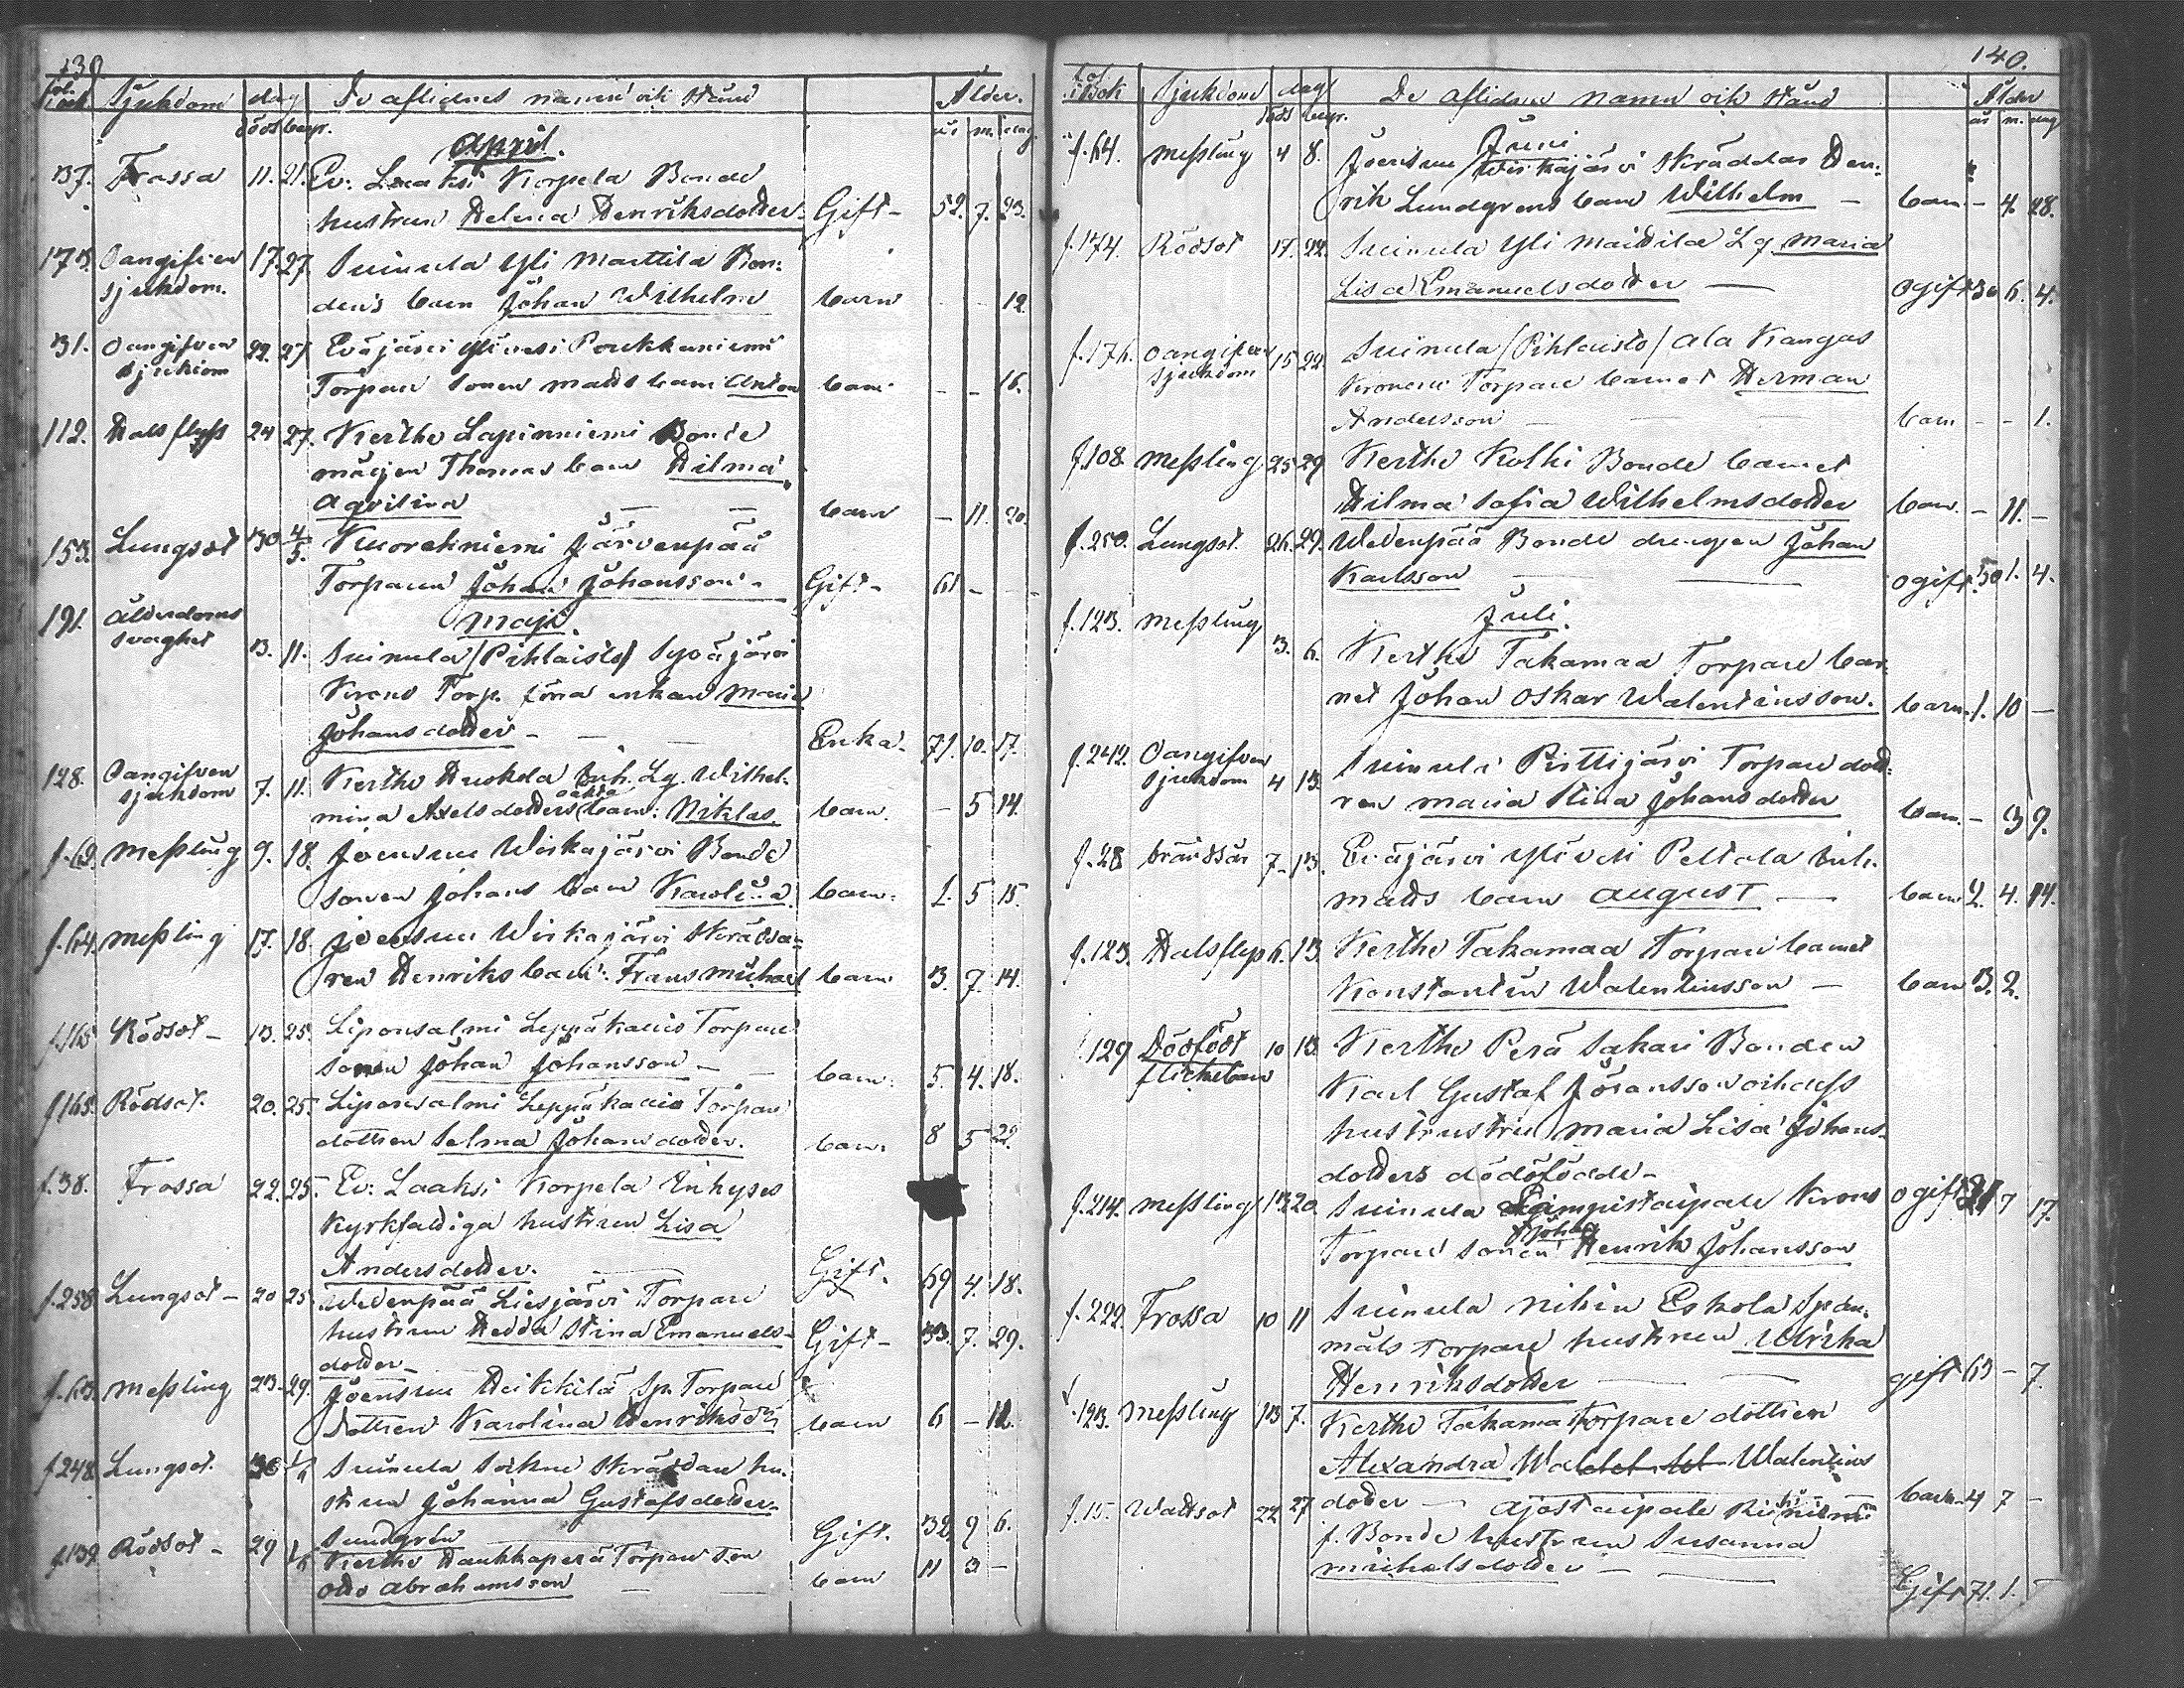 139.
fol. i Bok Sjukdom dag De aflidnes namn och stånd Ålder.
död begr. år m. dag
April.
37. Frossa 11. 21. Ev: Laaksi Korpela Bonde
hustrun Helena Henriksdotter Gift- 52. 7. 23.
173. Oangifven 17. 27. Suinula Yli Marttila Bon-
sjukdom. dens barn Johan Wilhelm barn - - 12.
31. Oangifven 22. 27. Eväjärvi Ylivesi Poukkaniemi
sjukdom Torpare sonen Matts barn Anton barn - - 16.
112. Halsflyss 24 27. Kerthe Lapinniemi Bonde
mågen Thomas barn Hilma
Aqvilina - - barn - 11. 20.
153. Lungsot 30 4/5. Kuorehniemi Järvenpää
Torparen Johan Johansson - Gift- 61 - -
191. Ålderdoms Maji
svaghet 3. 11. Suinula /Pihlaisto/ Syväjärvi
Krono Torp. före enkan Maria
Johansdotter - - Enka. 71. 10. 17.
128. Oangifven 7. 11. Kerthe Huskola Inh. Lg. Wilhel-
sjukdom mina Axelsdotters oäkta barn: Niklas. barn. - 5 14.
f. 63. Messling 9. 18. Joensuu Wirkajärvi Bonde
sonen Johans barn Karolina barn. 1. 5 15.
f. 64. Messling 17. 18. Joensuu Wirkajärvi Skrädda-
ren Henriks barn: Frans Michael barn 3. 7. 14.
f. 165 Rödsot - 13. 25. Liponsalmi Leppäkaux Torpare
sonen Johan Johansson - - barn. 5. 4. 18.
f. 165. Rödsot. 20. 25. Liponsalmi Leppäkaux Torpare
dottren Selma Johansdotter. barn. 8 5 22.
f. 38. Frossa 22. 25. Ev: Laaksi Korpela Enkyses
Kyrkfattiga hustrun Lisa
Andersdotter. Gift. 69 4. 18.
f. 258 Lungsot - 20 25 Wedenpää Liesjärvi Torpare
hustrun Hedda Stina Emanuels- Gift- 33. 7. 29.
dotter -
f. 63. Messling 23. 29. Joensuu Heikkilä Sp. Torpare
Dottren Karolina Henriksdr barn 6 - 12.
f. 248. Lungsot. 30 1/6 Suinula Sorkne Skräddare hu-
strun Johanna Gustafsdotter
Sundgren Gift. 32 9 6.
f. 139. Rödsot - 29 1/6 Kerthe Haukkaperä Torpare son
Otto Abrahamsson - - barn 11 3 -
140.
fol. i Bok Sjukdom dag De aflidnes namn och stånd Ålder
död begr. år m. dag
Juni
f. 64. Messling 4 8. Joensuu /Wirkajärvi Skräddar Hen-
rik Lundgrens barn Wilhelm - barn - 4 28.
f. 174. Rödsot 17. 22. Suinula Yli Marttila Lg. Maria
Lisa Emanuelsdotter - ogift 30 6. 4.
f. 176. Oangifven 15 22. Suinula /Pihlaisto/ Ala Kangas
sjukdom Kronens Torpare barnet Herman
Andersson - - barn - - 1.
f. 108. Messling 25 29. Kerthe Kolhi Bonde barnet
Hilma Sofia Wilhelmsdotter barn. - 11. -
f. 250. Lungsot. 26. 29. Wedenpää Bonde drengen Johan
Karlsson - - ogift. 50 1. 4.
Juli.
f. 123. Messling 3. 6. Kerthe Takamaa Torpare bar-
net Johan Oskar Walentinsson. barn. 1. 10 -
f. 242. Oangifven 4 13. Suinula Pittijärvi Torpare dott-
sjukdom ren Maria Stina Johansdotter barn. - 3 9.
f. 28 brändsår 7. 13. Eväjärvi Ylivesi Peltola Inh.
Matts barn August - barn 2. 4. 14.
f. 123. Halsflyss 6. 13. Kerthe Takamaa Torpare barnet
Konstantin Walentinsson - barn 3. 2.
f. 129 Dödfödt 10 13. Kerthe Perä Sakari Bonden
flickebarn Karl Gustaf Göransson och dess
hustrustru Maria Lisa Johans-
dotters dödöfödde -
f. 214. Messling 13 20. Suinula Lampistaipale Krono ogift 21 7 17.
Torpare sonen Johan Henrik Johansson
f. 222. Frossa 10 11 Suinula Nihiu Eskola Speden-
måls Torpare hustrun Ulrika
Henriksdotter - - gift 63 - 7.
f. 123. Messling 13 7. Kerthe Takamaa Torpare dottren
Alexandra Walentins
dotter - barn 4 7 -
f. 15. Wattsot 22 27 Ajostaipale Riihiniemi
f. Bonde hustrun Susanna
Michelsdotter - - Gift 71. 1. -